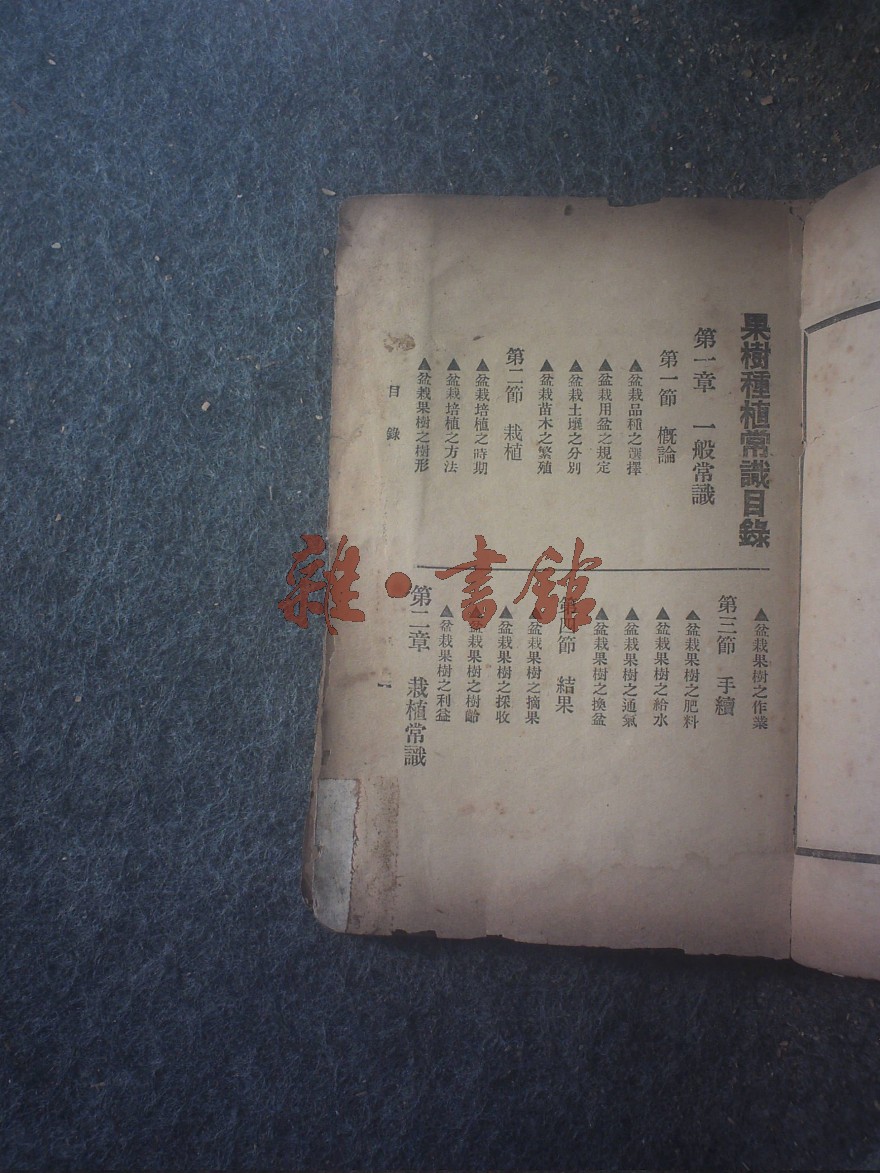 果樹種植常識目錄
第一章　一般常識
第一節　槪論
▲盆栽品種之選擇
▲盆栽用盆之規定
▲盆栽土壤之分別
▲盆栽苗木之繁殖
第二節　栽植
▲盆栽培植之時期
▲盆栽培植之方法
▲盆栽果樹之樹形
▲盆栽果樹之作業
第三節　手續
▲盆栽果樹之肥料
▲盆栽果樹之給水
▲盆栽果樹之通氣
▲盆栽果樹之換盆
第四節　結果
▲盆栽果樹之摘果
▲盆栽果樹之採收
▲盆栽果樹之樹齡
▲盆栽果樹之利益
第二章　栽植常識
目錄
一
雜·書館